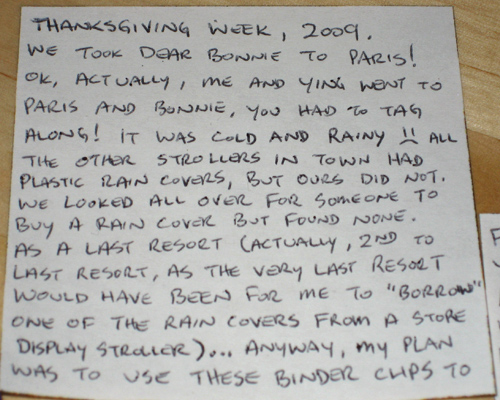 THANKSGIVING WEEK, 2009.
WE TOOK DEAR BONNIE TO PARIS!
OK, ACTUALLY, ME AND YING WENT TO
PARIS AND BONNIE, YOU HAD TO TAG
ALONG! IT WAS COLD AND RAINY ALL
THE OTHER STROLLERS IN TOWN HAD
PLASTIC RAIN COVERS, BUT OURS DID NOT.
WE LOOKED ALL OVER FOR SOMEONE TO
BUY A RAIN COVER BUT FOUND NONE.
AS A LAST RESORT (ACTUALLY, 2ND TO
LAST RESORT, AS THE VERY LAST RESORT
WOULD HAVE BEEN FOR ME TO "BORROW"
ONE OF THE RAIN COVERS FROM A STORE
DISPLAY STROLLER)... ANYWAY, MY PLAN
WAS TO USE THESE BINDER CLIPS TO